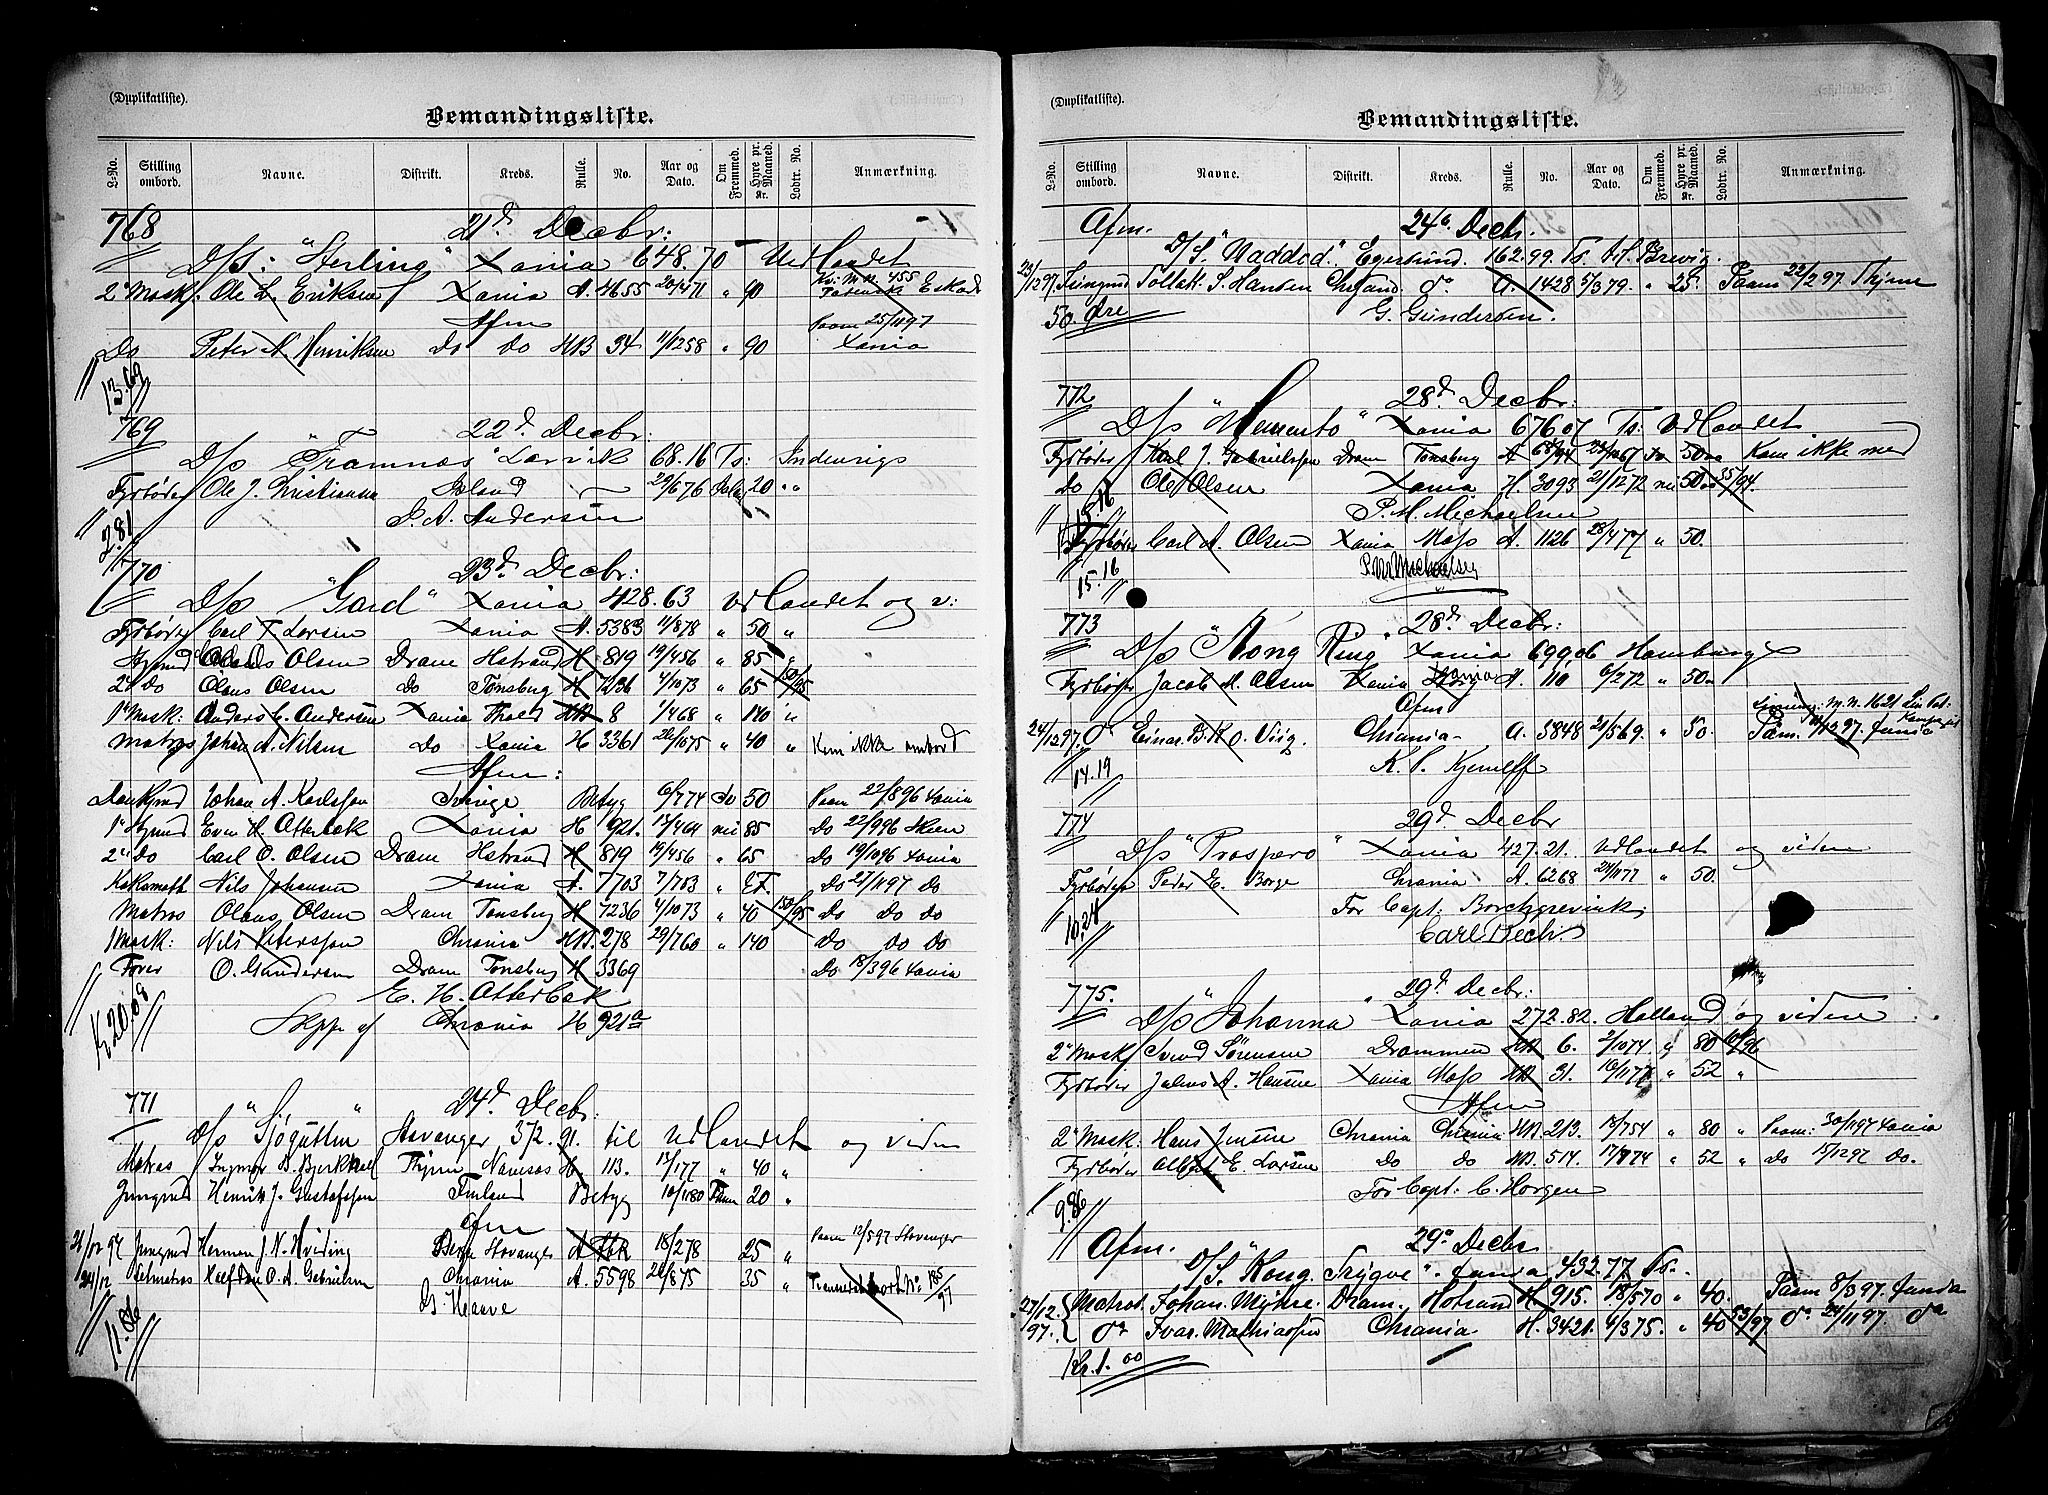 (Duplikatliste).
Bemandingsliste.
L-No. Stilling ombord. Navne. Distrikt. Kreds. Rulle. No. Aar og Dato. Om Fremmed. Hyre pr. Maaned. Kr. Lodtr. No. Anmærkning.
768 21d Decbr:
D/S: "Sterling" Xania 648.70 - Udlandet
2' Mask. Ole L. Eriksen Xania A. 4655 20/471 " 90
Afm Paam 25/1197
Do Peter A. Henriksen Do Do HB 34 11/1258 " 90 Xania
13.69
769 22d Decbr:
D/s "Framnæs" Larvik 68.16 Ts: Indenrigs
Fyrbøder Ole J. Kristiansen Island 29/676 20 "
P. A. Andersen
2.81
770 23d Decbr:
D/s "Gard" Xania 428.63 Udlandet og v:
Fyrbøder Carl F. Larsen Xania A. 5383 11/878 " 50 "
Styrmd Olsen Dram Hstrand H 819 19/456 " 85 "
2d Do Olaus Olsen do Tønsberg H 7236 4/1073 " 65 150/95
1' Mask: Anders C. Andersen Xania HB 8 1/468 " 140 "
Matros Johan A. Nilsen Do Xania H 3361 26/1075 " 40 " Kom ikke ombord
Afm:
Johan A. Karlsson Sverige Betyg 6/774 50 Paam 22/896 Xania
1' Styrmd Even H. Atterbek Xania H 921. 13/464 nei 85 Do 22/996 Skien
2' Do Carl O. Olsen Dram Hstrand H 819 19/456 " 65 Do 19/1096 Xania
Koksmath Nils Johansen Xania A. 7703 7/783 " Do 27/1197 Do
Matros Olaus Olsen Dram Tønsberg H 7236 4/1073 " 40 150/95 Do Do Do
1' Mask: Nils Petersson Chrania HB. 278 29/760 " 140 Do Do Do
Fører O. Gundersen Dram Tønsberg H 3369 Do 18/396 Xania
E. H. Atterbek
Kr 20.09
Skipper af Chrania H 921a
771 24d Decbr:
D/s "Sjøgutten" Stavanger 372.91. til Udlandet og viden
Matros Ingmar B. Bjerkheel Thjem Namsos H. 113. 13/177 " 40 "
Jungmd Henrik J. Gustafsson Finland Betyg 10/1180 20 "
Afm
24/12 97 Jungmd Herman J. N. Hviding Stavanger A 18/278 25 " Paam 12/597 Stavanger
24/12 Letmatros Halfdan O. A. Gabrielsen Chrania A. 5598 26/875 35 " 185/97
B. Haave
11.86
(Duplikatliste).
Bemandingsliste.
L-No. Stilling ombord. Navne. Distrikt. Kreds. Rulle. No. Aar og Dato. Om Fremmed. Hyre pr. Maaned. Kr. Lodtr. No. Anmærkning.
Afm. 24de Decbr.
D/S. "Naddod". Egersund. 162.99. Ts. Brevig.
23/1297. Jungmd Tollak. S. Hansen Chrsand do A. 1428 5/379. " 25. Paam 22/297. Thjem
50. Øre G. Gundersen.
772 28d Decbr:
D/s "Memento" Xania 676.07 Ts: Udlandet
Fyrbøder Karl J. Gabrielsen Dram Tønsberg A 68/94 50 Kom ikke med
do Ole Olsen Xania H. 3093 21/1272 nei 50 35/94.
15.16 P. M. Michaelsen
Fyrbøder Carl A. Olsen Xania Moss A. 1126 28/477 " 50.
15.16 P. M. Michaelsen
773 28d Decbr:
D/s "Kong Ring" Xania 699.06 Hamburg
Fyrbøder Jacob A. Olsen Xania Xania A. 110 6/272 " 50
Afm
24/1297. do Einar. B. K. O. Viig. Chrania - A. 3848 21/569. " 50.
14.19 K. S. Kjemlff
774 29d Decbr
D/s "Prospero" Xania 427.21. Udlandet og viden
Fyrbøder Peder E. Borge Chrania A. 6268 24/1177 " 50.
For Capt: Borchgrevink.
10.24 Carl Bech.
775. 29d Decbr:
D/s "Johanna" Xania 272.82. Holland og viden
2' Mask Svend Sørensen Drammen HB 6. 2/1074 " 80 11/96
Fyrbøder Julius A. Hansen Xania Moss HB 31. 16/1177 " 52 "
Afm
2' Mask: Hans Jensen Chrania Chrania HB. 213. 13/754 " 80 " Paam: 30/1197 Xania
Fyrbøder Albert E. Larsen Do do HB. 514. 17/874 " 52 " Do 17/1297 Do.
For Capt: C. Horgen
9.86
Afm. 29de Decbr
D/S. "Kong. Trygve". Xania 432.77 Ts.
27/12. 97. Matros Johan. Myhre. Dram. Hstrand H. 915. 18/570 " 40. Paam 8/397.
do Ivar. Mathiassen Chrania H. 3421. 6/375. " 40 53/97 do 24/1197. do
Kr. 1.00